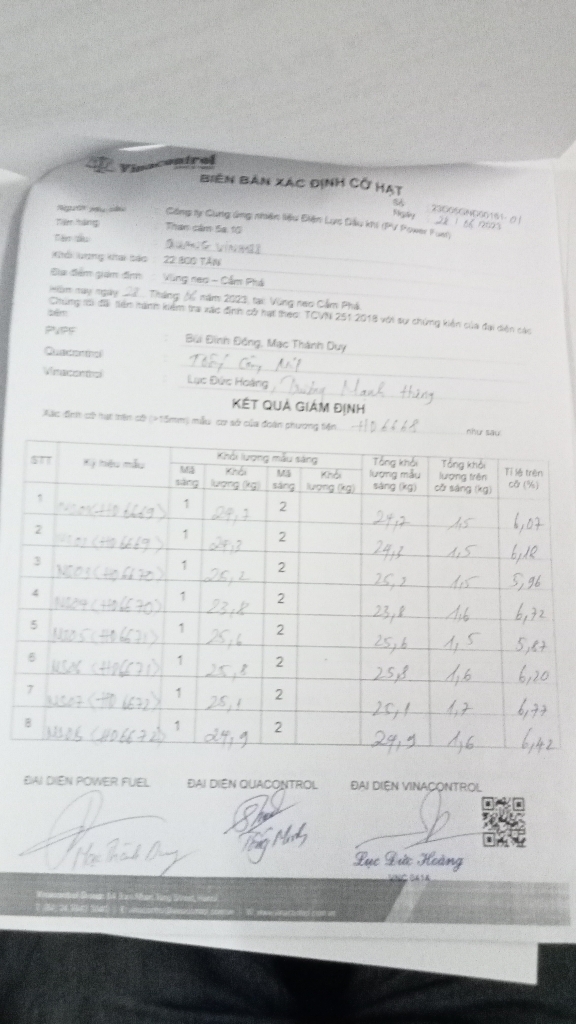 Vinacontrol
BIÊN BẢN XÁC ĐỊNH CỠ HẠT
Số
Ngày : 28 / 06 / 2023
: Công ty Cung ứng nhiên liệu Điện Lực Dầu khí (PV Power Fuel)
Tên hàng : Than cám 5a.10
Tên tàu : QUANG VINH
Khối lượng khai báo : 22.800 TẤN
Địa điểm giám định : Vùng neo – Cẩm Phả
Hôm nay ngày 28 Tháng 06 năm 2023, tại: Vùng neo Cẩm Phả.
Chúng tôi đã tiến hành kiểm tra xác định cỡ hạt theo: TCVN 251:2018 với sự chứng kiến của đại diện các
bên:
PVPF : Bùi Đình Đông, Mạc Thành Duy
Quacontrol :
Vinacontrol : Lục Đức Hoàng, Trương Mạnh Hùng
KẾT QUẢ GIÁM ĐỊNH
Xác định cỡ hạt trên cỡ (>15mm) mẫu cơ sở của đoàn phương tiện HD6668 như sau:
STT Ký hiệu mẫu Khối lượng mẫu sàng Tổng khối lượng mẫu sàng (kg) Tổng khối lượng trên cỡ sàng (kg) Tỉ lệ trên cỡ (%)
Mã sàng Khối lượng (kg) Mã sàng Khối lượng (kg)
1 NS01 (HD6669) 1 24,7 2 24,7 1,5 6,07
2 NS02 (HD6669) 1 2 1,5 6,18
3 NS03 (HD6670) 1 25,2 2 25,2 1,5 5,96
4 NS04 (HD6670) 1 23,8 2 23,8 1,6 6,72
5 NS05 (HD6671) 1 25,6 2 25,6 1,5 5,87
6 NS06 (HD6671) 1 25,8 2 25,8 1,6 6,20
7 NS07 (HD6672) 1 25,1 2 25,1 1,7 6,77
8 (HD6672) 1 24,9 2 24,9 1,6 6,42
ĐẠI DIỆN POWER FUEL ĐẠI DIỆN QUACONTROL ĐẠI DIỆN VINACONTROL
Mạc Thành Duy
Lục Đức Hoàng
VNC 0414